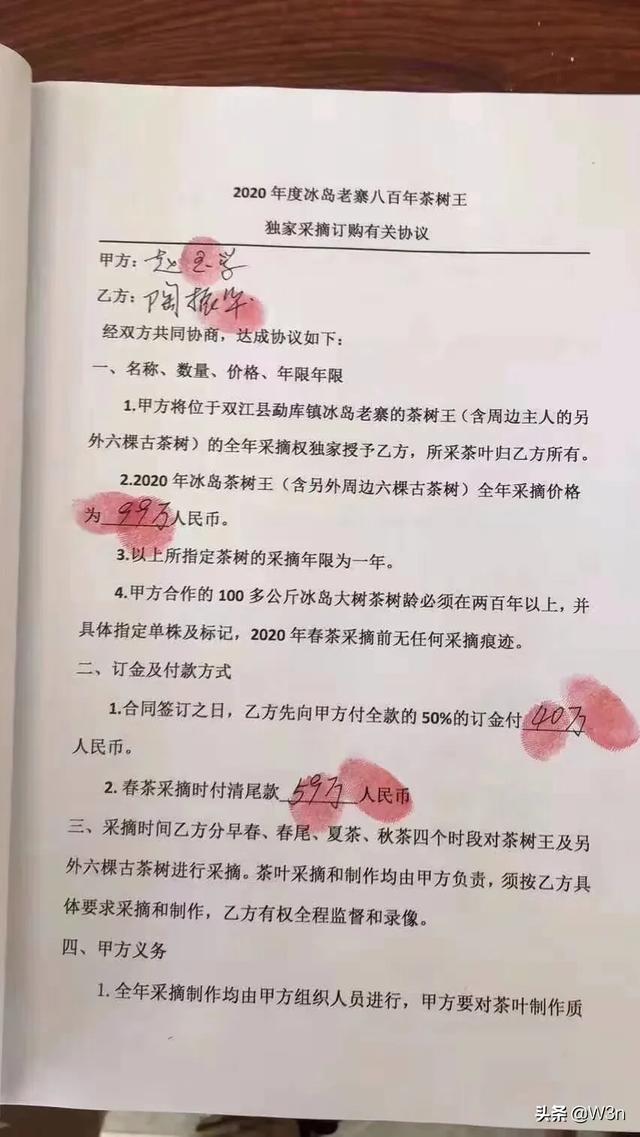 2020 年度冰岛老寨八百年茶树王
独家采摘订购有关协议
甲方：赵玉学
乙方：陶振华
经双方共同协商，达成协议如下：
一、名称、数量、价格、年限年限
1.甲方将位于双江县勐库镇冰岛老寨的茶树王（含周边主人的另
外六棵古茶树）的全年采摘权独家授予乙方，所采茶叶归乙方所有。
2.2020 年冰岛茶树王（含另外周边六棵古茶树）全年采摘价格
为 99万 人民币。
3.以上所指定茶树的采摘年限为一年。
4.甲方合作的 100 多公斤冰岛大树茶树龄必须在两百年以上，并
具体指定单株及标记，2020 年春茶采摘前无任何采摘痕迹。
二、订金及付款方式
1.合同签订之日，乙方先向甲方付全款的 50%的订金付 40万
人民币。
2. 春茶采摘时付清尾款 59万 人民币
三、采摘时间乙方分早春、春尾、夏茶、秋茶四个时段对茶树王及另
外六棵古茶树进行采摘。茶叶采摘和制作均由甲方负责，须按乙方具
体要求采摘和制作，乙方有权全程监督和录像。
四、甲方义务
1. 全年采摘制作均由甲方组织人员进行，甲方要对茶叶制作质
头条 @W3n